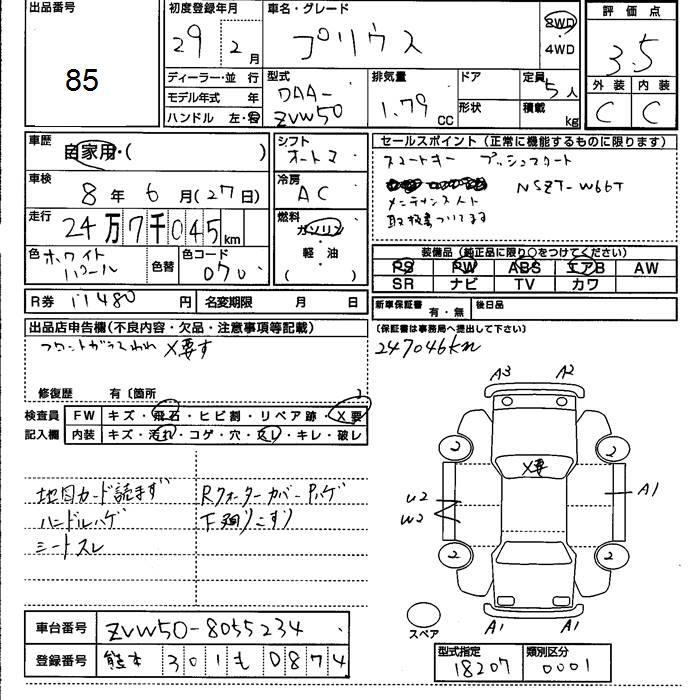 出品番号
85
初度登録年月
29年2月
車名・グレード
プリウス
2WD・4WD
評価点
3.5
外装 内装
C C
ディーラー・並行
モデル年式 年
ハンドル 左・右
型式
DAA-
ZVW50
排気量
1.79 CC
ドア
形状
定員
5人
積載
kg
車歴
自家用・( )
車検
8年6月(27日)
走行
24万7千045km
色
ホワイト
パール
色替
色コード
070
シフト
オートマ
冷房
AC
燃料
ガソリン
・
軽・油
( )
セールスポイント(正常に機能するものに限ります)
スマートキー プッシュスタート
NSZT-W66T
メンテナンスノート
取扱書ついてます
装備品(純正品に限り○をつけてください)
PS PW ABS エアB AW
SR ナビ TV カワ
R券 11480円
名変期限 月 日
新車保証書 有・無
後日品
(保証書は事務局へ提出して下さい)
247046km
出品店申告欄(不良内容・欠品・注意事項等記載)
フロントガラスわれ X要す
修復歴 有〔箇所
検査員記入欄
FW キズ・飛石・ヒビ割・リペア跡・X要
内装 キズ・汚れ・コゲ・穴・スレ・キレ・破レ
地図カード読まず
ハンドルハゲ
シートスレ
Rクォーターカバーハゲ
下廻りこすり
A3 A2
2 2
X要
U2
W2
A1
2 2
A1 A1
スペア
車台番号 ZVW50-8055234
登録番号 熊本 301 も 0874
型式指定 類別区分
18207 0001